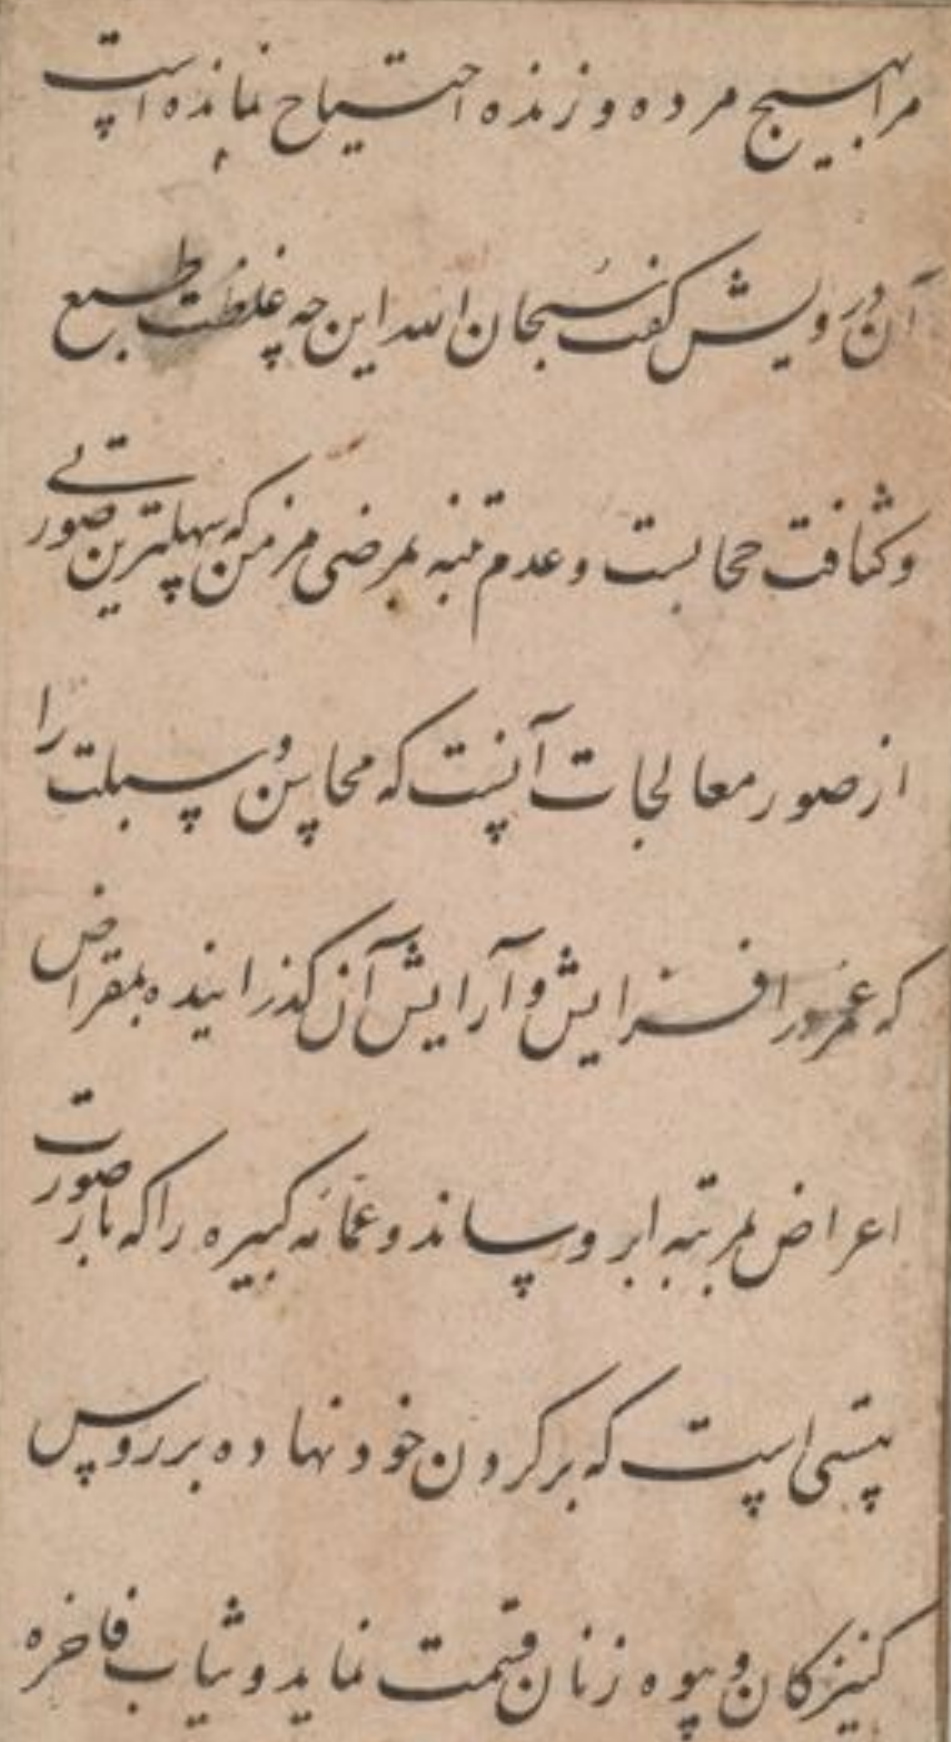 مرا بهیچ مرده و زنده احتیاج نمانده است
آن درویش گفت سبحان الله این چه غلظت طبع
و کثافت حجابست و عدم تنبه بمرضی مزمن که سهلترین صورتی
از صور معالجات آنست که محاسن و سبلت را
که عمر در افزایش و آرایش آن گذرانیده بمقراض
اعراض بمرتبه ابرو رساند و عمامه کبیره را که بار صورت
هستی است که بر گردن خود نهاده بر روس
کنیزکان و بیوه زنان قسمت نماید و ثیاب فاخره